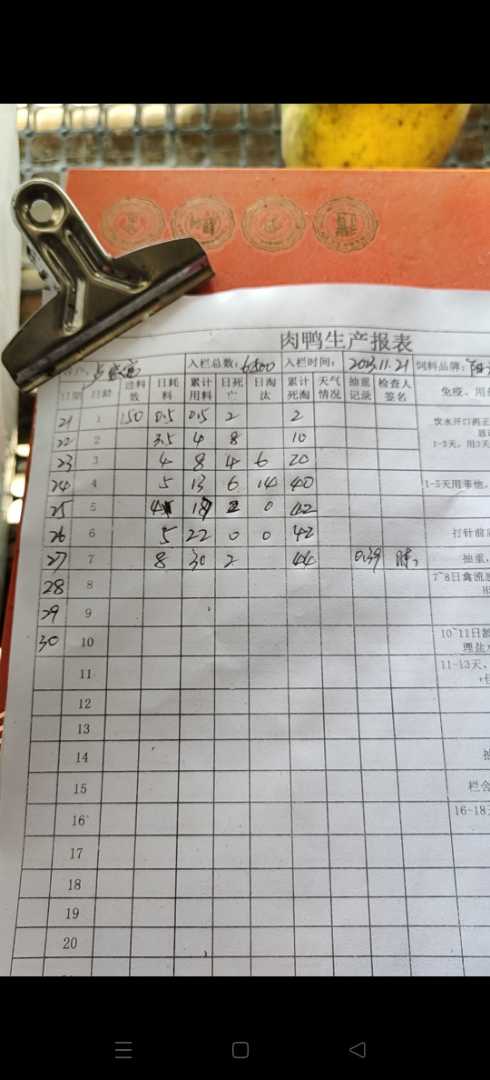 肉鸭生产报表
入栏总数: 6500 入栏时间: 2023.11.21 饲料品牌:
日期 日龄 进料数 日耗料 累计用料 日死亡 日淘汰 累计死淘 天气情况 抽重记录 检查人签名 免疫、用
21 1 150 0.5 0.5 2 2 饮水开口药
22 2 3.5 4 8 10 1-3天,用3天
23 3 4 8 4 6 20
24 4 5 13 6 14 40 1-5天用
25 5 2 0 42
26 6 5 22 0 0 42 打针前
27 7 8 30 2 44 0.39 抽重,
28 8 7~8日禽流
29 9
30 10 10~11日
11 11-13天,
12
13
14
15 栏
16 16-18
17
18
19
20